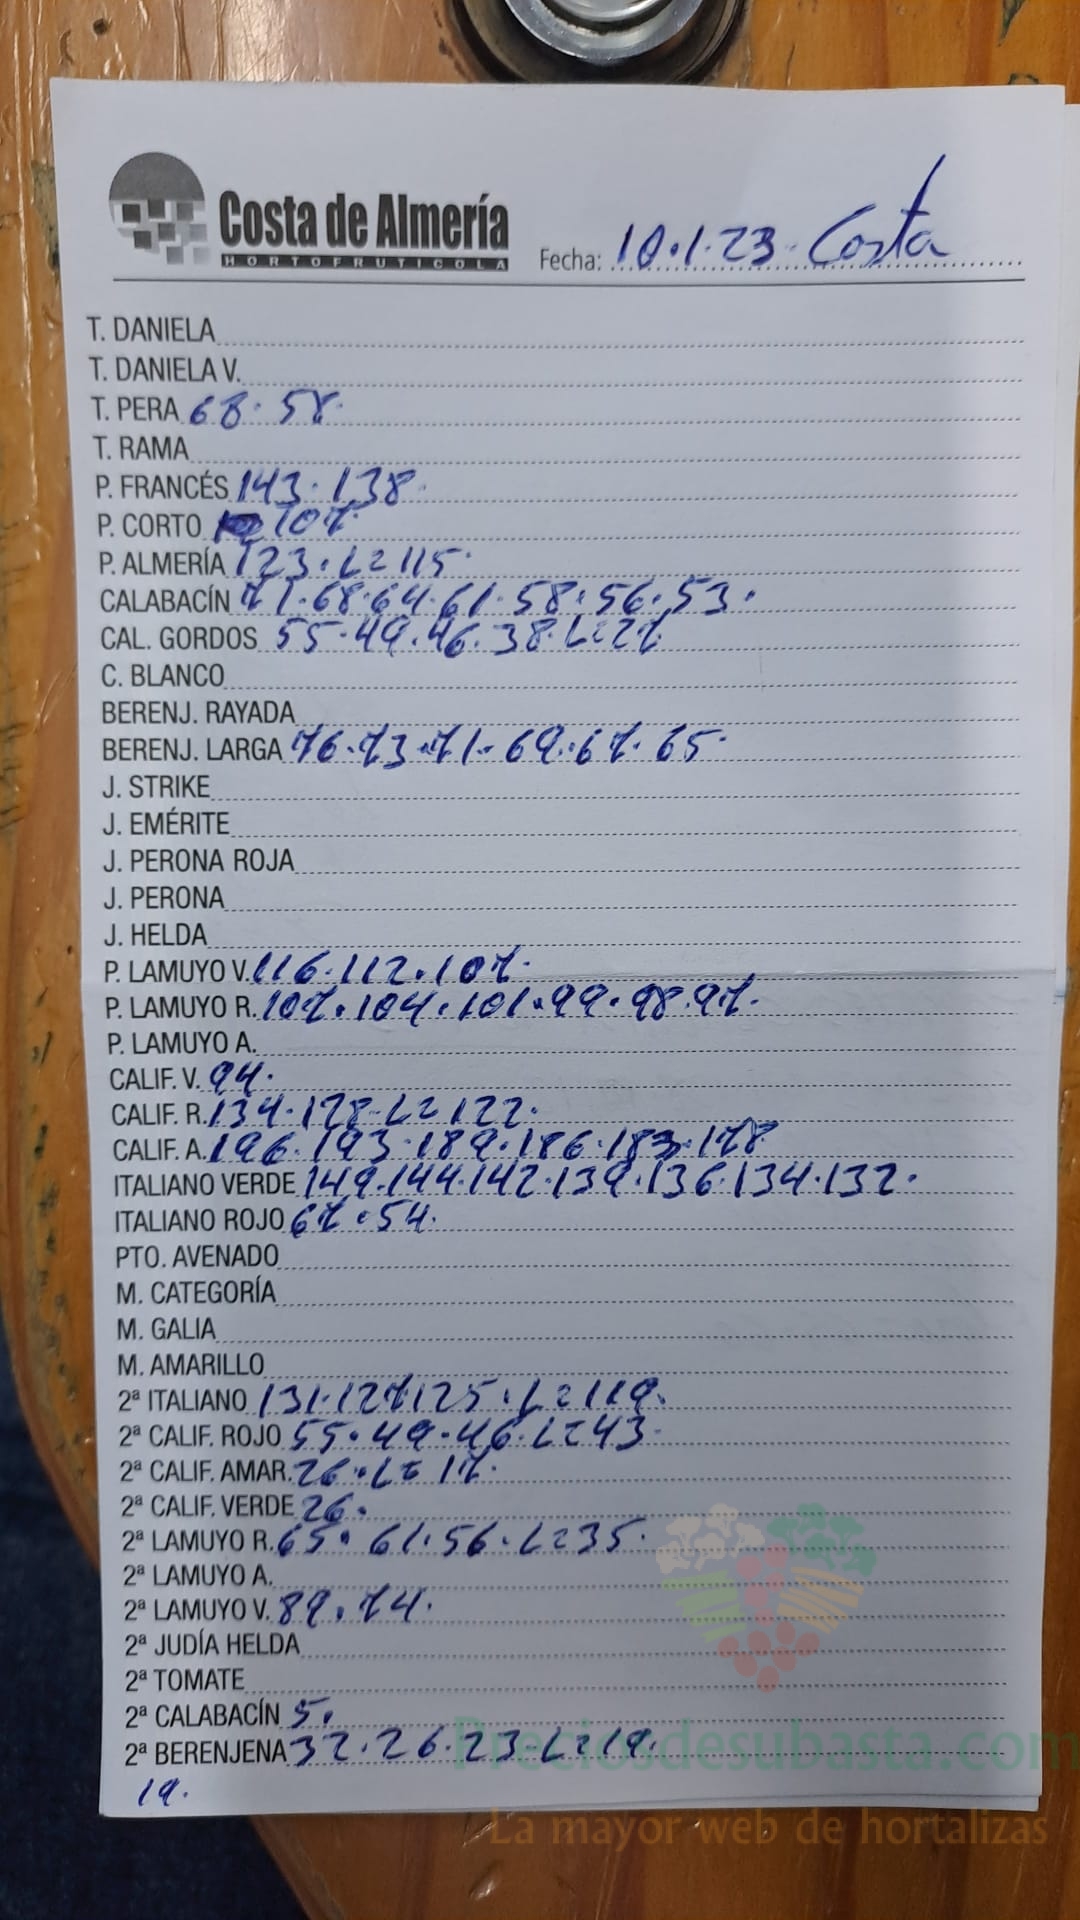 Costa de Almería
HORTOFRUTICOLA
Fecha: 10.1.23. Costa
T. DANIELA
T. DANIELA V.
T. PERA 68. 58.
T. RAMA
P. FRANCÉS 143. 138.
P. CORTO 107.
P. ALMERÍA 123. L=115.
CALABACÍN 71. 68. 64. 61. 58. 56. 53.
CAL. GORDOS 55. 49. 46. 38. L=27.
C. BLANCO
BERENJ. RAYADA
BERENJ. LARGA 76. 73. 71. 69. 67. 65.
J. STRIKE
J. EMÉRITE
J. PERONA ROJA
J. PERONA
J. HELDA
P. LAMUYO V. 116. 112. 107.
P. LAMUYO R. 107. 104. 101. 99. 98. 97.
P. LAMUYO A.
CALIF. V. 94.
CALIF. R. 134. 128. L=122.
CALIF. A. 196. 193. 189. 186. 183. 178
ITALIANO VERDE 149. 144. 142. 139. 136. 134. 132.
ITALIANO ROJO 67. 54.
PTO. AVENADO
M. CATEGORÍA
M. GALIA
M. AMARILLO
2ª ITALIANO 131. 127. 125. L=119.
2ª CALIF. ROJO 55. 49. 46. L=43.
2ª CALIF. AMAR. 26. L=17.
2ª CALIF. VERDE 26.
2ª LAMUYO R. 65. 61. 56. L=35.
2ª LAMUYO A.
2ª LAMUYO V. 89. 74.
2ª JUDÍA HELDA
2ª TOMATE
2ª CALABACÍN 5.
2ª BERENJENA 32. 26. 23. L=19.
19.
Preciosdesubasta.com
La mayor web de hortalizas